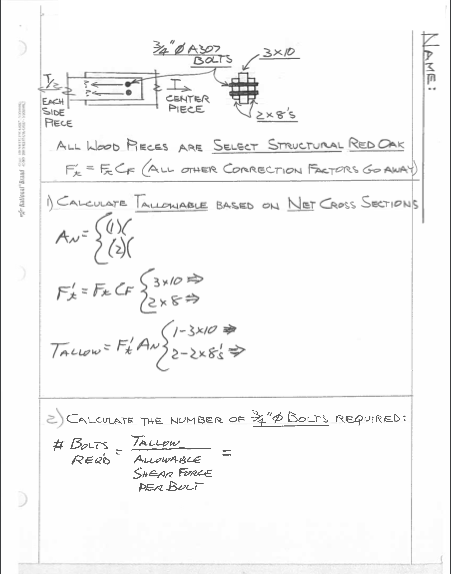 NAME:
3/4" Ø A307
BOLTS
3x10
T/2
EACH
SIDE
PIECE
T
CENTER
PIECE
2x8's
ALL WOOD PIECES ARE SELECT STRUCTURAL RED OAK
F't = Ft CF (ALL OTHER CORRECTION FACTORS GO AWAY)
1) CALCULATE TALLOWABLE BASED ON NET CROSS SECTIONS
AN = { (1)(
(2)(
F't = Ft CF { 3x10 ⇒
2x8 ⇒
TALLOW = F't AN { 1-3x10 ⇒
2-2x8's ⇒
2) CALCULATE THE NUMBER OF 3/4" Ø BOLTS REQUIRED:
# BOLTS REQ'D = TALLOW / ALLOWABLE SHEAR FORCE PER BOLT =